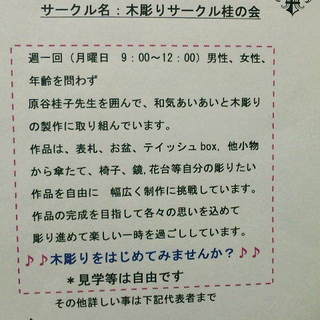 サークル名：木彫りサークル桂の会
週一回（月曜日　9：00～12：00）男性、女性、
年齢を問わず
原谷桂子先生を囲んで、和気あいあいと木彫り
の製作に取り組んでいます。
作品は、表札、お盆、テイッシュbox，他小物
から傘たて、椅子、鏡,花台等自分の彫りたい
作品を自由に　幅広く制作に挑戦しています。
作品の完成を目指して各々の思いを込めて
彫り進めて楽しい一時を過ごししています。
♪♪木彫りをはじめてみませんか？♪♪
＊見学等は自由です
その他詳しい事は下記代表者まで